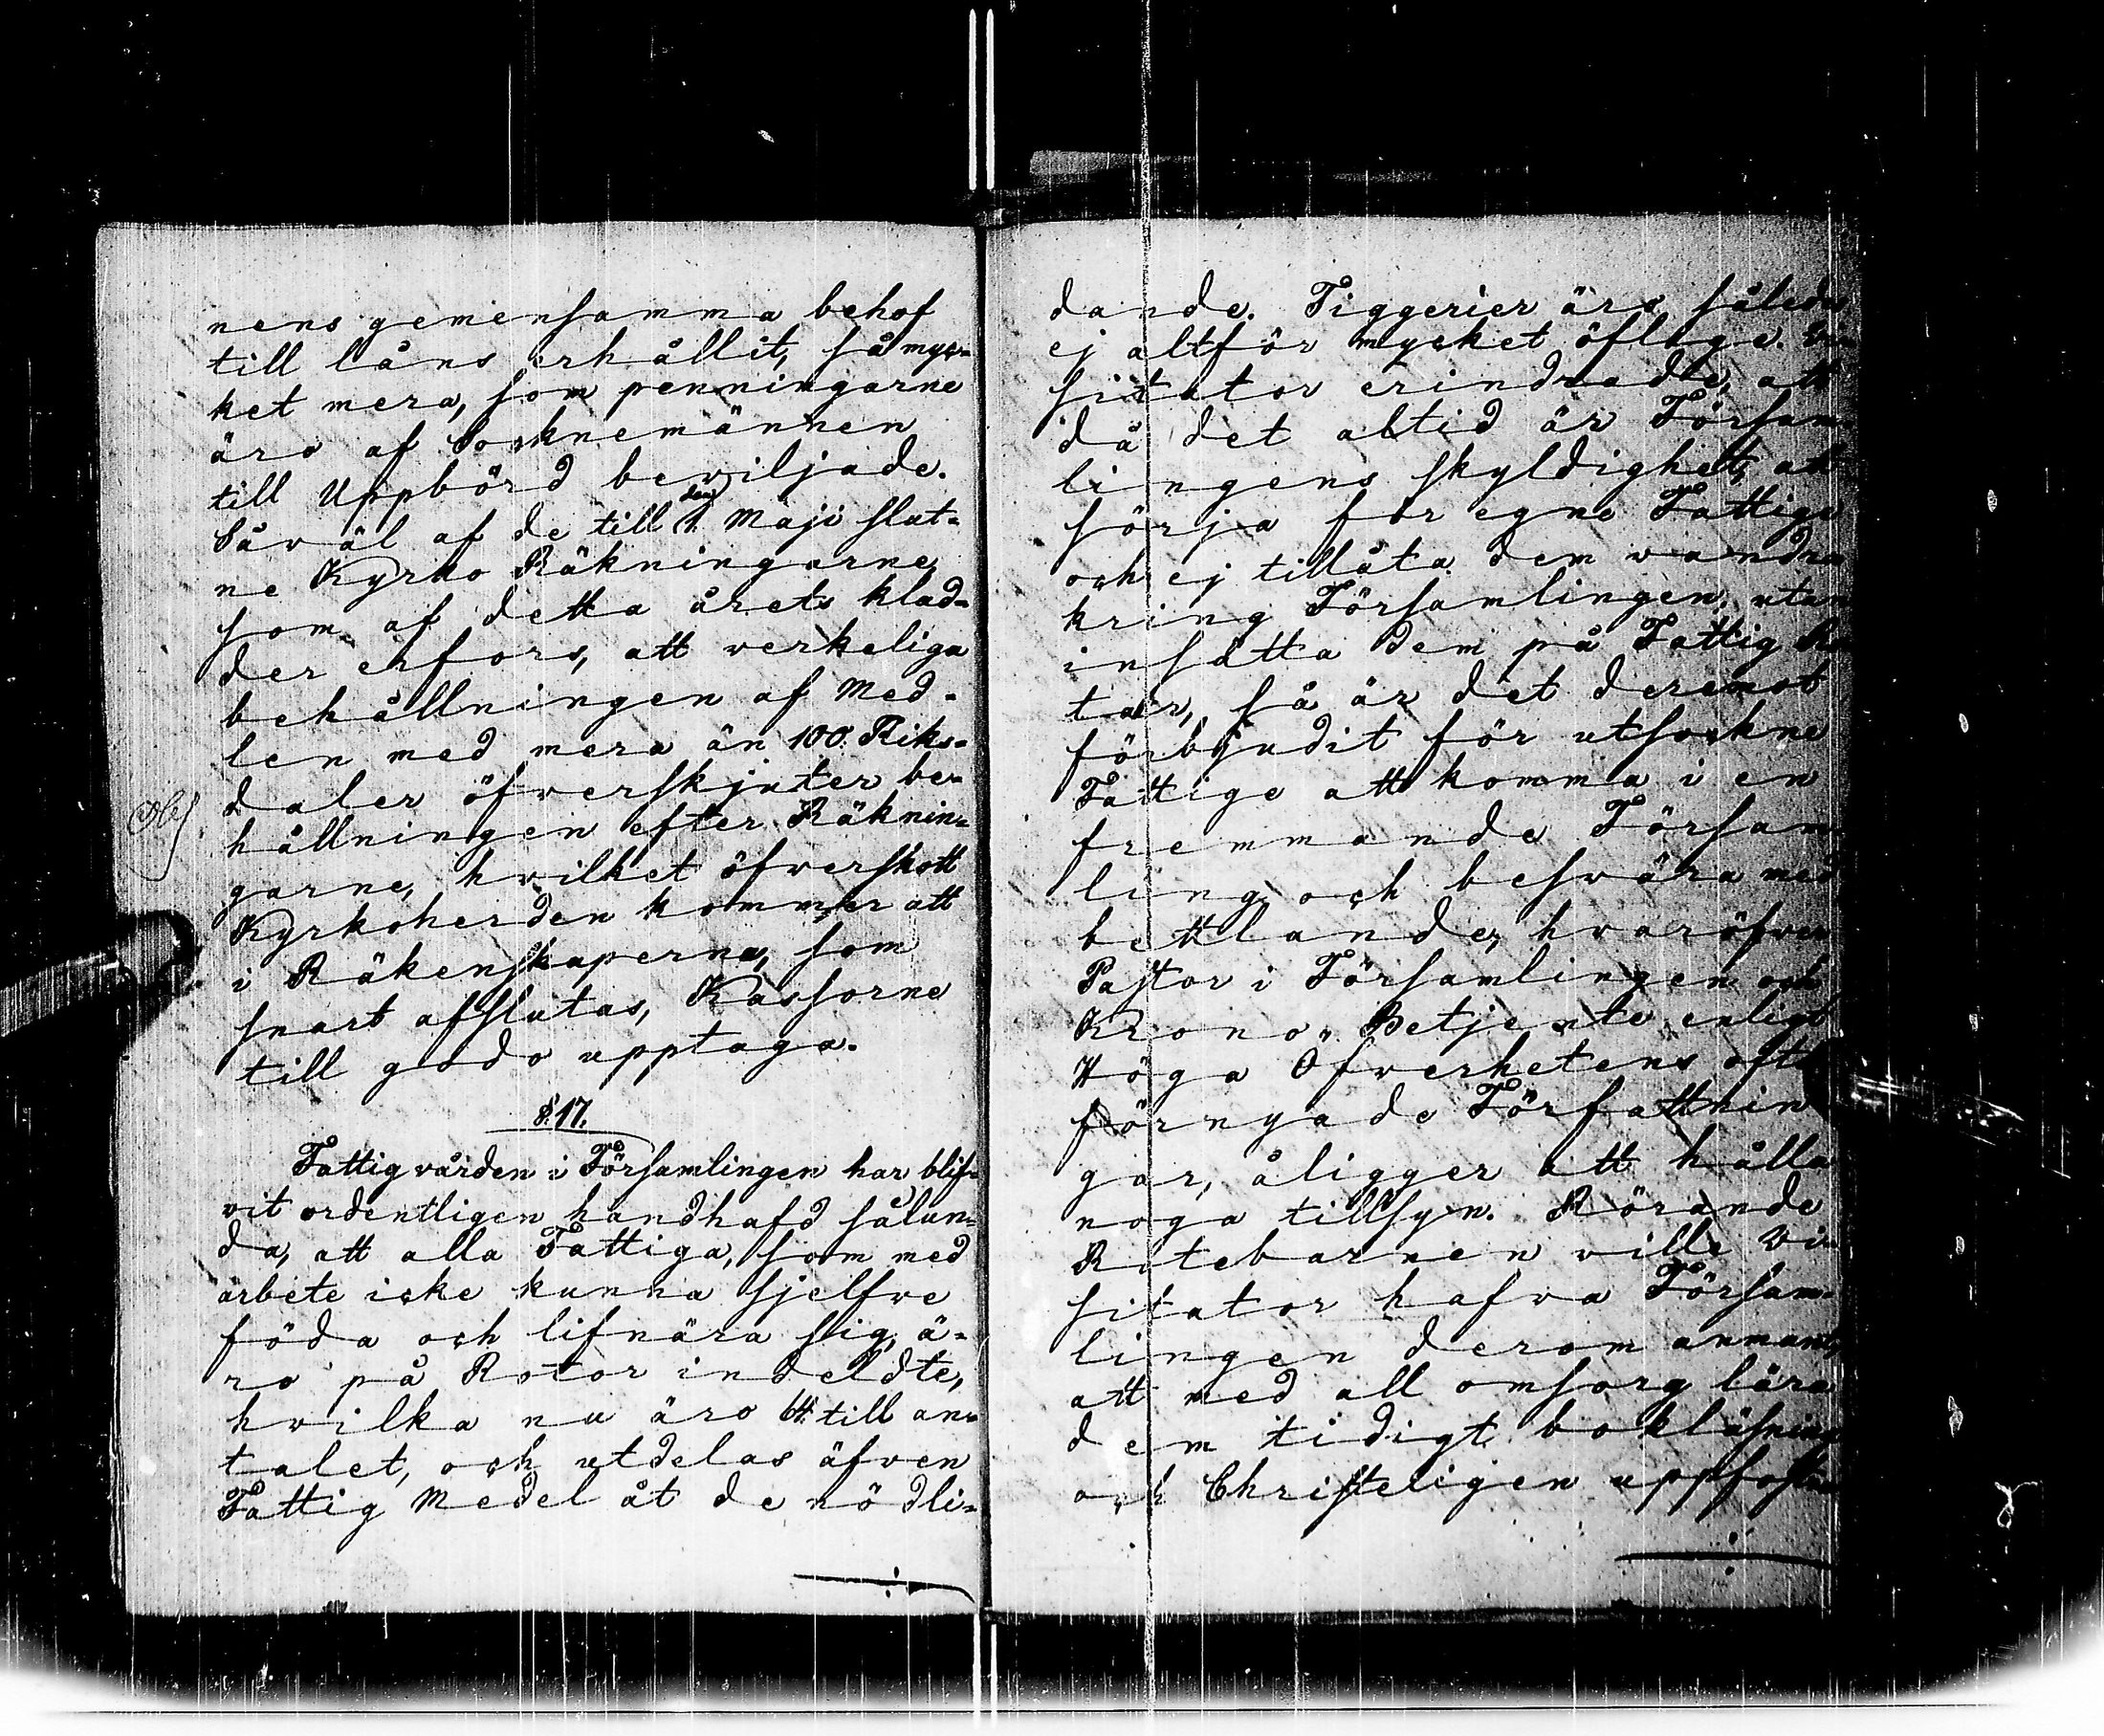 nens gemensamma behof
till låns erhållit, så myc-
ket mera, som penningarne
äro af Socknemännen
till Uppbörd beviljade.
Såväl af de till den 1. Maji slut-
ne Kyrko Räkningarne,
som af detta årets klad-
der erfors, att verkeliga
behållningen af Med-
len med mera än 100. Riks-
daler öfverskjuter be-
hållningen efter Räknin-
garne, hvilket öfverskott
Kyrkoherden kommer att
i Räkenskaperna, som
snart afslutas, Kassorne
till godo upptaga.
§. 17.
Fattigvården i Församlingen har blif-
vit ordentligen handhafd sålun-
da, att alla Fattiga, som med
arbete icke kunna sjelfve
föda och lifnära sig, ä-
ro på Rotor indeldte,
hvilka nu äro 64. till an-
talet, och utdelas äfven
Fattig Medel åt de nödli-
dande. Tiggerier äro således
ej altför mycket öflige. Vi-
sitator erindrade, att
då det altid är Försam-
lingens skyldighet, att
sörja för egne Fattige
och ej tillåta dem vandra
kring Församlingen, utan
insätta dem på Fattig Ro-
tar, så är det deremot
förbjudit för utsockne
Fattige att komma i en
fremmande Försam-
ling och besvära med
bettlande, hvaröfver
Pastor i Församlingen och
Krono-Betjente enligt
Höga Öfverhetens ofta
förnyade Författnin
gar, åligger att hålla
noga tillsyn. Rörande
Rotebarnen ville Vi-
sitator hafva Försam-
lingen derom anmant,
att med all omsorg lära
dem tidigt bokläsning
och Christeligen uppfostra